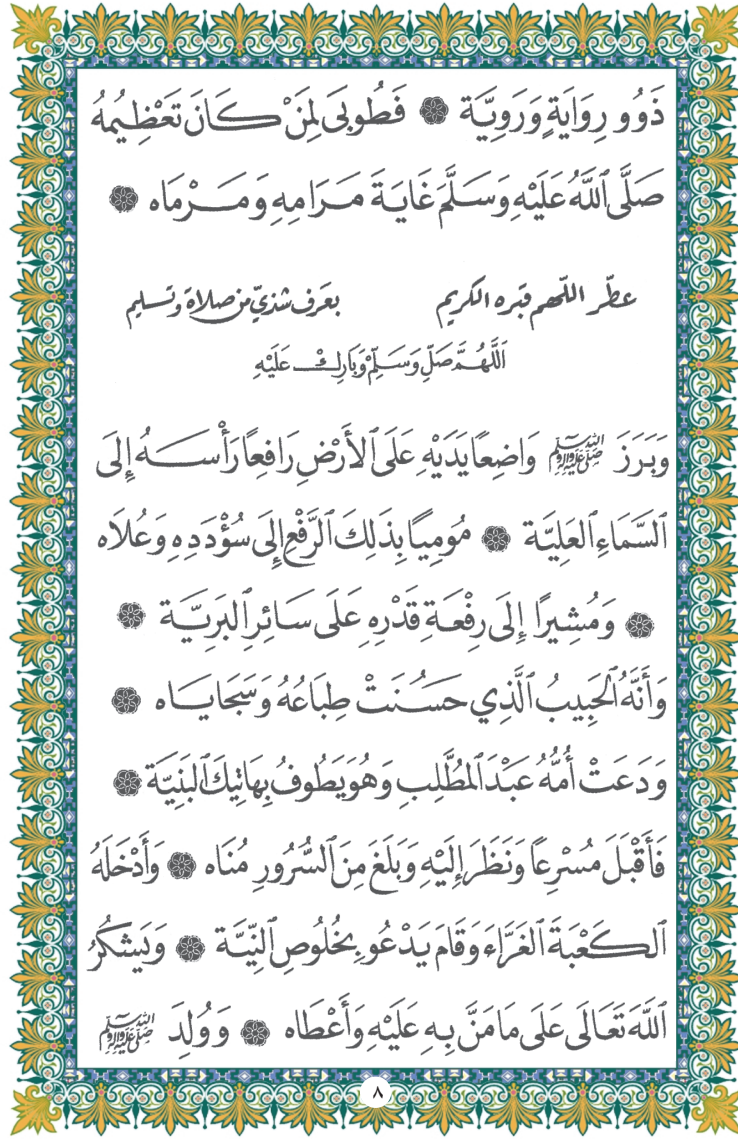 ذَوُو رِوَايَةٍ وَرَوِيَّة ۞ فَطُوبَى لِمَنْ كَانَ تَعْظِيمُهُ
صَلَّى ٱللَّهُ عَلَيْهِ وَسَلَّمَ غَايَةَ مَرَامِهِ وَمَرْمَاه ۞
عطّر اللّهم قبره الكريم بعَرف شذيّ من صلاة وتسليم
اَللَّهُمَّ صَلِّ وَسَلِّمْ وَبَارِكْ عَلَيْهِ
وَبَرَزَ ﷺ وَاضِعًا يَدَيْهِ عَلَى ٱلأَرْضِ رَافِعًا رَأْسَهُ إِلَى
ٱلسَّمَاءِ ٱلعَلِيَّة ۞ مُومِيًا بِذَلِكَ ٱلرَّفْعِ إِلَى سُؤْدَدِهِ وَعُلَاه
۞ وَمُشِيرًا إِلَى رِفْعَةِ قَدْرِهِ عَلَى سَائِرِ ٱلبَرِيَّة ۞
وَأَنَّهُ ٱلحَبِيبُ ٱلَّذِي حَسُنَتْ طِبَاعُهُ وَسَجَايَاه ۞
وَدَعَتْ أُمُّهُ عَبْدَ ٱلمُطَّلِبِ وَهُوَ يَطُوفُ بِهَاتِيكَ ٱلبَنِيَّة ۞
فَأَقْبَلَ مُسْرِعًا وَنَظَرَ إِلَيْهِ وَبَلَغَ مِنَ ٱلسُّرُورِ مُنَاه ۞ وَأَدْخَلَهُ
ٱلكَعْبَةَ ٱلغَرَّاءَ وَقَامَ يَدْعُو بِخُلُوصِ ٱلنِّيَّة ۞ وَيَشكُرُ
ٱللَّهَ تَعَالَى عَلَى مَا مَنَّ بِهِ عَلَيْهِ وَأَعْطَاه ۞ وَوُلِدَ ﷺ
٨